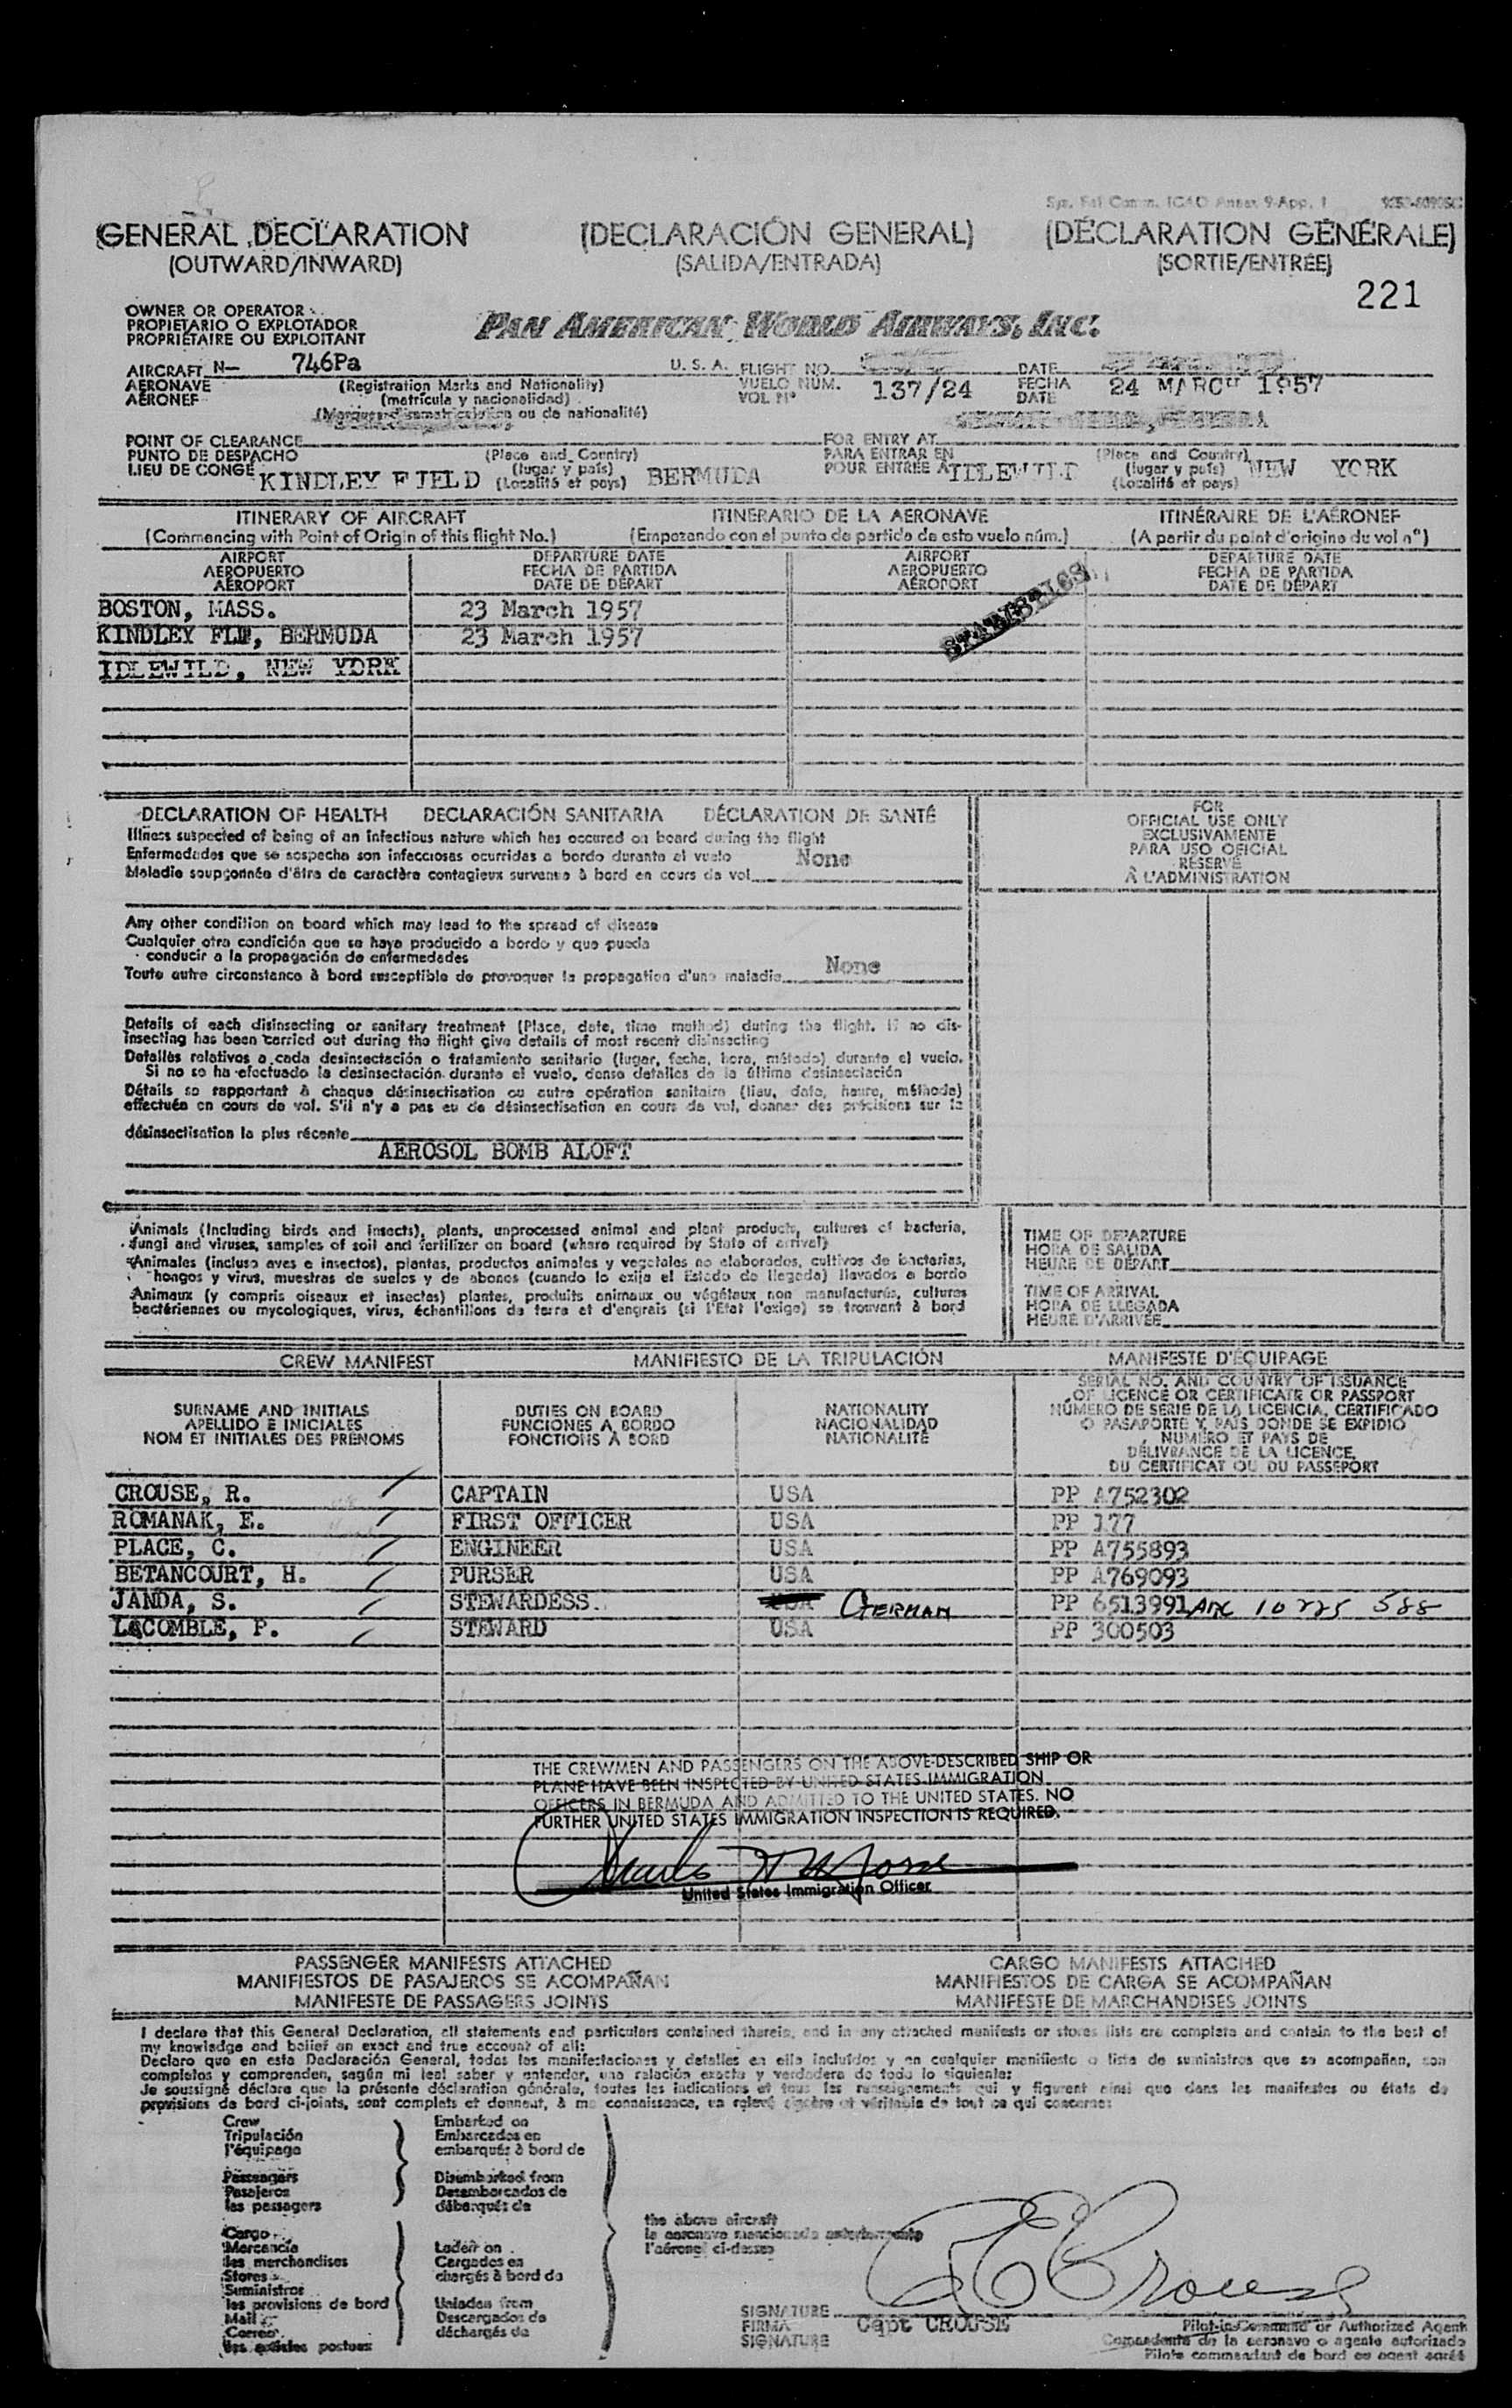 GENERAL DECLARATION (DECLARACIÓN GENERAL) (DÉCLARATION GÉNÉRALE)
(OUTWARD/INWARD) (SALIDA/ENTRADA) (SORTIE/ENTRÉE)
221
OWNER OR OPERATOR
PROPIETARIO O EXPLOTADOR
PROPRIÉTAIRE OU EXPLOITANT
PAN AMERICAN WORLD AIRWAYS, INC.
AIRCRAFT N- 746Pa U. S. A. FLIGHT NO. DATE
AERONAVE (Registration Marks and Nationality) VUELO NUM. 137/24 FECHA 24 MARCH 1957
AÉRONEF (matrícula y nacionalidad) VOL Nº DATE
(Marques d'immatriculation ou de nationalité)
POINT OF CLEARANCE FOR ENTRY AT
PUNTO DE DESPACHO (Place and Country) PARA ENTRAR EN (Place and Country)
LIEU DE CONGÉ KINDLEY FIELD (lugar y país) BERMUDA POUR ENTRÉE À IDLEWILD (lugar y país) NEW YORK
(Localité et pays) (Localité et pays)
ITINERARY OF AIRCRAFT ITINERARIO DE LA AERONAVE ITINÉRAIRE DE L'AÉRONEF
(Commencing with Point of Origin of this flight No.) (Empezando con el punto de partida de este vuelo núm.) (A partir du point d'origine du vol nº)
AIRPORT DEPARTURE DATE AIRPORT DEPARTURE DATE
AEROPUERTO FECHA DE PARTIDA AEROPUERTO FECHA DE PARTIDA
AÉROPORT DATE DE DÉPART AÉROPORT DATE DE DÉPART
STATISTICS
BOSTON, MASS. 23 March 1957
KINDLEY FLD, BERMUDA 23 March 1957
IDLEWILD, NEW YORK
DECLARATION OF HEALTH DECLARACIÓN SANITARIA DÉCLARATION DE SANTÉ
Illness suspected of being of an infectious nature which has occured on board during the flight
Enfermedades que se sospecha son infecciosas ocurridas a bordo durante el vuelo None
Maladie soupçonnée d'être de caractère contagieux survenue à bord en cours de vol
FOR
OFFICIAL USE ONLY
EXCLUSIVAMENTE
PARA USO OFICIAL
RÉSERVÉ
À L'ADMINISTRATION
Any other condition on board which may lead to the spread of disease
Cualquier otra condición que se haya producido a bordo y que pueda
conducir a la propagación de enfermedades
Toute autre circonstance à bord susceptible de provoquer la propagation d'une maladie None
Details of each disinsecting or sanitary treatment (Place, date, time method) during the flight. If no dis-
insecting has been carried out during the flight give details of most recent disinsecting
Detalles relativos a cada desinsectación o tratamiento sanitario (lugar, fecha, hora, método) durante el vuelo.
Si no se ha efectuado la desinsectación durante el vuelo, dense detalles de la última desinsectación
Détails se rapportant à chaque désinsectisation ou autre opération sanitaire (lieu, date, heure, méthode)
effectuée en cours de vol. S'il n'y a pas eu de désinsectisation en cours de vol, donner des précisions sur la
désinsectisation la plus récente
AEROSOL BOMB ALOFT
Animals (including birds and insects), plants, unprocessed animal and plant products, cultures of bacteria,
fungi and viruses, samples of soil and fertilizer on board (where required by State of arrival)
Animales (incluso aves e insectos), plantas, productos animales y vegetales no elaborados, cultivos de bacterias,
hongos y virus, muestras de suelos y de abonos (cuando lo exija el Estado de llegada) llevados a bordo
Animaux (y compris oiseaux et insectes) plantes, produits animaux ou végétaux non manufacturés, cultures
bactériennes ou mycologiques, virus, échantillons de terre et d'engrais (si l'Etat l'exige) se trouvant à bord
TIME OF DEPARTURE
HORA DE SALIDA
HEURE DE DÉPART
TIME OF ARRIVAL
HORA DE LLEGADA
HEURE D'ARRIVÉE
CREW MANIFEST MANIFIESTO DE LA TRIPULACIÓN MANIFESTE D'ÉQUIPAGE
SURNAME AND INITIALS
APELLIDO E INICIALES
NOM ET INITIALES DES PRÉNOMS
DUTIES ON BOARD
FUNCIONES A BORDO
FONCTIONS À BORD
NATIONALITY
NACIONALIDAD
NATIONALITÉ
SERIAL NO. AND COUNTRY OF ISSUANCE
OF LICENCE OR CERTIFICATE OR PASSPORT
NÚMERO DE SERIE DE LA LICENCIA, CERTIFICADO
O PASAPORTE Y PAÍS DONDE SE EXPIDIÓ
NUMÉRO ET PAYS DE
DÉLIVRANCE DE LA LICENCE,
DU CERTIFICAT OU DU PASSEPORT
CROUSE, R. CAPTAIN USA PP A752302
ROMANAK, E. FIRST OFFICER USA PP 177
PLACE, C. ENGINEER USA PP A755893
BETANCOURT, H. PURSER USA PP A769093
JANDA, S. STEWARDESS. USA GERMAN PP 6513991 ARC 10 225 588
LACOMBLE, P. STEWARD USA PP 300503
THE CREWMEN AND PASSENGERS ON THE ABOVE-DESCRIBED SHIP OR
PLANE HAVE BEEN INSPECTED BY UNITED STATES IMMIGRATION
OFFICERS IN BERMUDA AND ADMITTED TO THE UNITED STATES. NO
FURTHER UNITED STATES IMMIGRATION INSPECTION IS REQUIRED.
United States Immigration Officer
PASSENGER MANIFESTS ATTACHED CARGO MANIFESTS ATTACHED
MANIFIESTOS DE PASAJEROS SE ACOMPAÑAN MANIFIESTOS DE CARGA SE ACOMPAÑAN
MANIFESTE DE PASSAGERS JOINTS MANIFESTE DE MARCHANDISES JOINTS
I declare that this General Declaration, all statements and particulars contained therein, and in any attached manifests or stores lists are complete and contain to the best of
my knowledge and belief an exact and true account of all:
Declaro que en esta Declaración General, todas las manifestaciones y detalles en ella incluídos y en cualquier manifiesto o lista de suministros que se acompañan, son
completos y comprenden, según mi leal saber y entender, una relación exacta y verdadera de todo lo siguiente:
Je soussigné déclare que la présente déclaration générale, toutes les indications et tous les renseignements qui y figurent ainsi que dans les manifestes ou états de
provisions de bord ci-joints, sont complets et donnent, à ma connaissance, un relevé sincère et véritable de tout ce qui concerne:
Crew Embarked on
Tripulación Embarcados en
l'équipage embarqués à bord de
Passengers Disembarked from
Pasajeros Desembarcados de
les passagers débarqués de
the above aircraft
la aeronave mencionada anteriormente
l'aéronef ci-dessus
Cargo
Mercancía Laden on
les merchandises Cargados en
Stores chargés à bord de
Suministros
les provisions de bord Unladen from
Mail Descargados de
Correo déchargés de
les articles postaux
R E Crouse
SIGNATURE
FIRMA Capt CROUSE
SIGNATURE
Pilot-in-Command or Authorized Agent
Comandante de la aeronave o agente autorizado
Pilote commandant de bord ou agent agréé